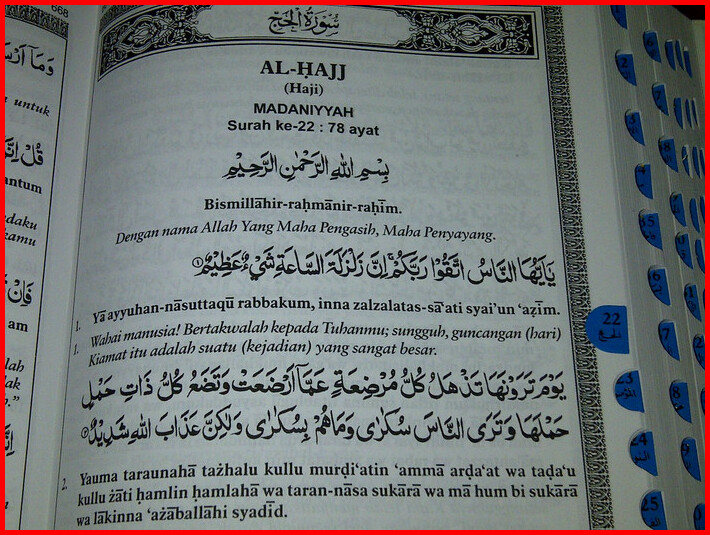 668
سُورَةُ الْحَجِّ
AL-ḤAJJ
(Haji)
MADANIYYAH
Surah ke-22 : 78 ayat
بِسْمِ اللّٰهِ الرَّحْمٰنِ الرَّحِيْمِ
Bismillāhir-raḥmānir-raḥīm.
Dengan nama Allah Yang Maha Pengasih, Maha Penyayang.
يٰٓاَيُّهَا النَّاسُ اتَّقُوْا رَبَّكُمْۚ اِنَّ زَلْزَلَةَ السَّاعَةِ شَيْءٌ عَظِيْمٌ ١
1. Yā ayyuhan-nāsuttaqū rabbakum, inna zalzalatas-sā‘ati syai'un ‘aẓīm.
1. Wahai manusia! Bertakwalah kepada Tuhanmu; sungguh, guncangan (hari)
Kiamat itu adalah suatu (kejadian) yang sangat besar.
يَوْمَ تَرَوْنَهَا تَذْهَلُ كُلُّ مُرْضِعَةٍ عَمَّآ اَرْضَعَتْ وَتَضَعُ كُلُّ ذَاتِ حَمْلٍ
حَمْلَهَا وَتَرَى النَّاسَ سُكٰرٰى وَمَا هُمْ بِسُكٰرٰى وَلٰكِنَّ عَذَابَ اللّٰهِ شَدِيْدٌ ٢
2. Yauma taraunahā tażhalu kullu murḍi‘atin ‘ammā arḍa‘at wa taḍa‘u
kullu żāti ḥamlin ḥamlahā wa taran-nāsa sukārā wa mā hum bi sukārā
wa lākinna ‘ażāballāhi syadīd.
untuk
قُلْ
antum
daku
kamu
am
lah
ak
22
الحج
24
25